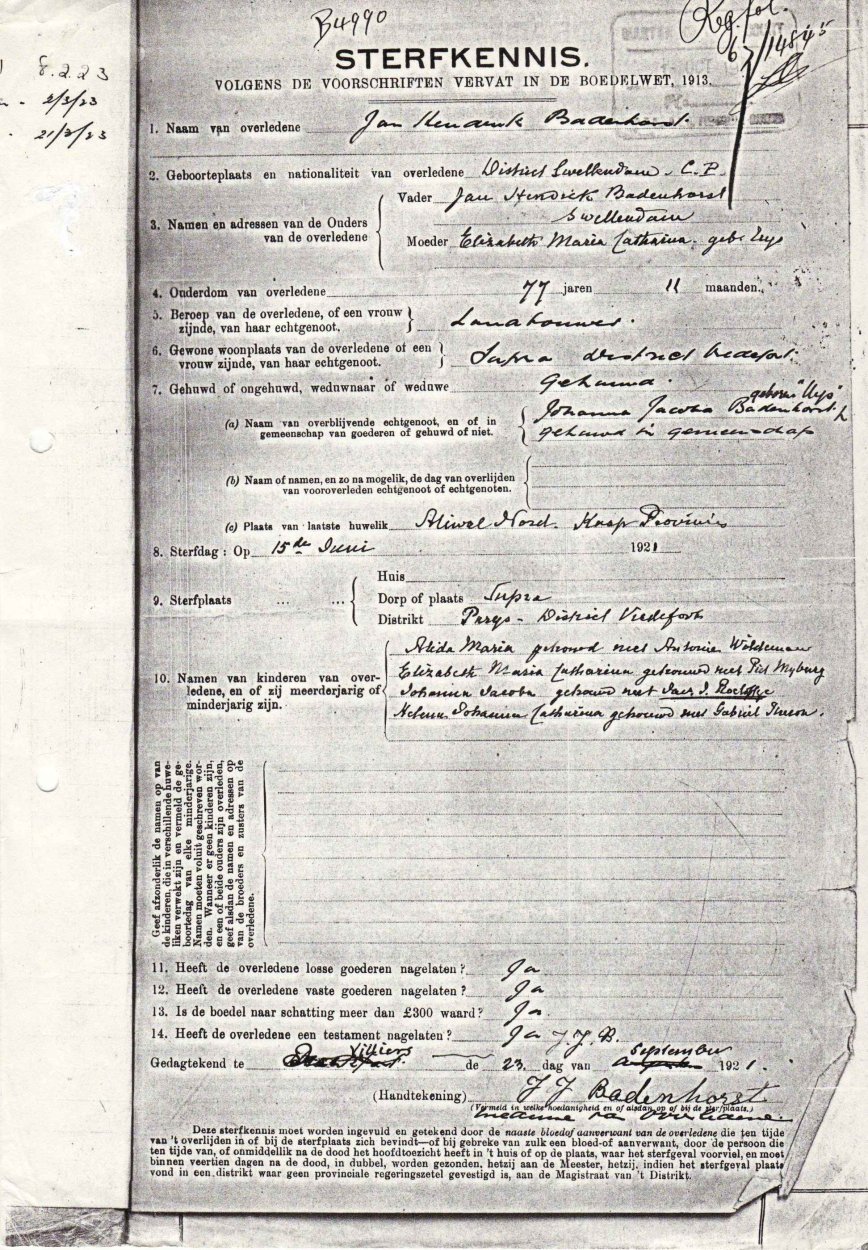 B4990
Reg. fol.
67/14845
8.2.23
2/3/23
21/3/23
STERFKENNIS.
VOLGENS DE VOORSCHRIFTEN VERVAT IN DE BOEDELWET, 1913.
1. Naam van overledene Jan Hendrik Badenhorst.
2. Geboorteplaats en nationaliteit van overledene District Swellendam. C.P.
3. Namen en adressen van de Ouders van de overledene
Vader Jan Hendrick Badenhorst
Swellendam
Moeder Elizabeth Maria Catharina gebr Uys
4. Ouderdom van overledene 77 jaren 11 maanden.
5. Beroep van de overledene, of een vrouw
zijnde, van haar echtgenoot. Landbouwer.
6. Gewone woonplaats van de overledene of een
vrouw zijnde, van haar echtgenoot. Supra District Vredefort
7. Gehuwd of ongehuwd, weduwnaar of weduwe Gehuwd.
(a) Naam van overblijvende echtgenoot, en of in
gemeenschap van goederen of gehuwd of niet.
geboren "Uys"
Johanna Jacoba Badenhorst
gehuwd in gemeenschap
(b) Naam of namen, en zo na mogelik, de dag van overlijden
van vooroverleden echtgenoot of echtgenoten.
(c) Plaats van laatste huwelik Aliwal Nord. Kaap Provincie
8. Sterfdag: Op 15de Juni 1921
9. Sterfplaats ... ...
Huis
Dorp of plaats Supra
Distrikt Parys - District Vredefort
10. Namen van kinderen van over-
ledene, en of zij meerderjarig of
minderjarig zijn.
Alida Maria getrouwd met Antonie Wildeman
Elizabeth Maria Catharina getrouwd met Piet Myburg
Johanna Jacoba getrouwd met J.
Helena Johanna Catharina getrouwd met Gabriel Theron.
Geef afzonderlik de namen op van
de kinderen, die in verschillende huwe-
liken verwekt zijn en vermeld de ge-
boortedag van elke minderjarige.
Namen moeten voluit geschreven wor-
den. Wanneer er geen kinderen zijn,
en een of beide ouders zijn overleden,
geef alsdan de namen en adressen op
van de broeders en zusters van de
overledene.
11. Heeft de overledene losse goederen nagelaten? Ja
12. Heeft de overledene vaste goederen nagelaten? Ja
13. Is de boedel naar schatting meer dan £300 waard? Ja.
14. Heeft de overledene een testament nagelaten? Ja J.J.B.
Gedagtekend te Villiers de 23 dag van September 1921.
(Handtekening) J J Badenhorst
(Vermeld in welke hoedanigheid en of alsdan op of bij de sterfplaats.)
weduwe van overledene.
Deze sterfkennis moet worden ingevuld en getekend door de naaste bloedof aanverwant van de overledene die ten tijde
van 't overlijden in of bij de sterfplaats zich bevindt—of bij gebreke van zulk een bloed-of aanverwant, door de persoon die
ten tijde van, of onmiddellik na de dood het hoofdtoezicht heeft in 't huis of op de plaats, waar het sterfgeval voorviel, en moet
binnen veertien dagen na de dood, in dubbel, worden gezonden, hetzij aan de Meester, hetzij, indien het sterfgeval plaats
vond in een distrikt waar geen provinciale regeringszetel gevestigd is, aan de Magistraat van 't Distrikt.